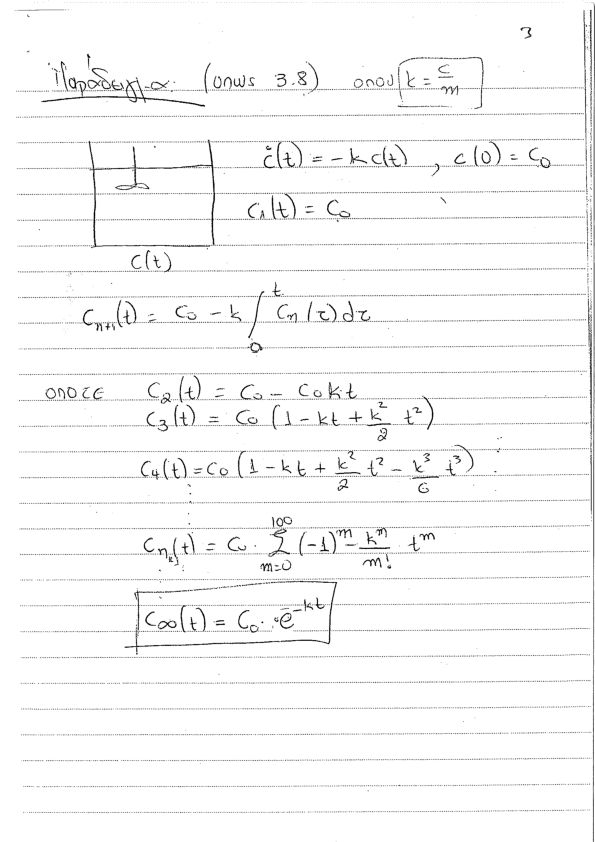 3
Παράδειγμα (οπως 3.8) οπου k = c/m
ċ(t) = -k c(t) , c(0) = C₀
C₁(t) = C₀
C(t)
Cₙ₊₁(t) = C₀ - k ∫₀ᵗ Cₙ(τ) dτ
οποτε C₂(t) = C₀ - C₀kt
C₃(t) = C₀ (1 - kt + k²/2 t²)
C₄(t) = C₀ (1 - kt + k²/2 t² - k³/6 t³)
(t) = C₀ · Σ_{m=0}^{100} (-1)ᵐ kᵐ/m! tᵐ
C∞(t) = C₀ · e^{-kt}